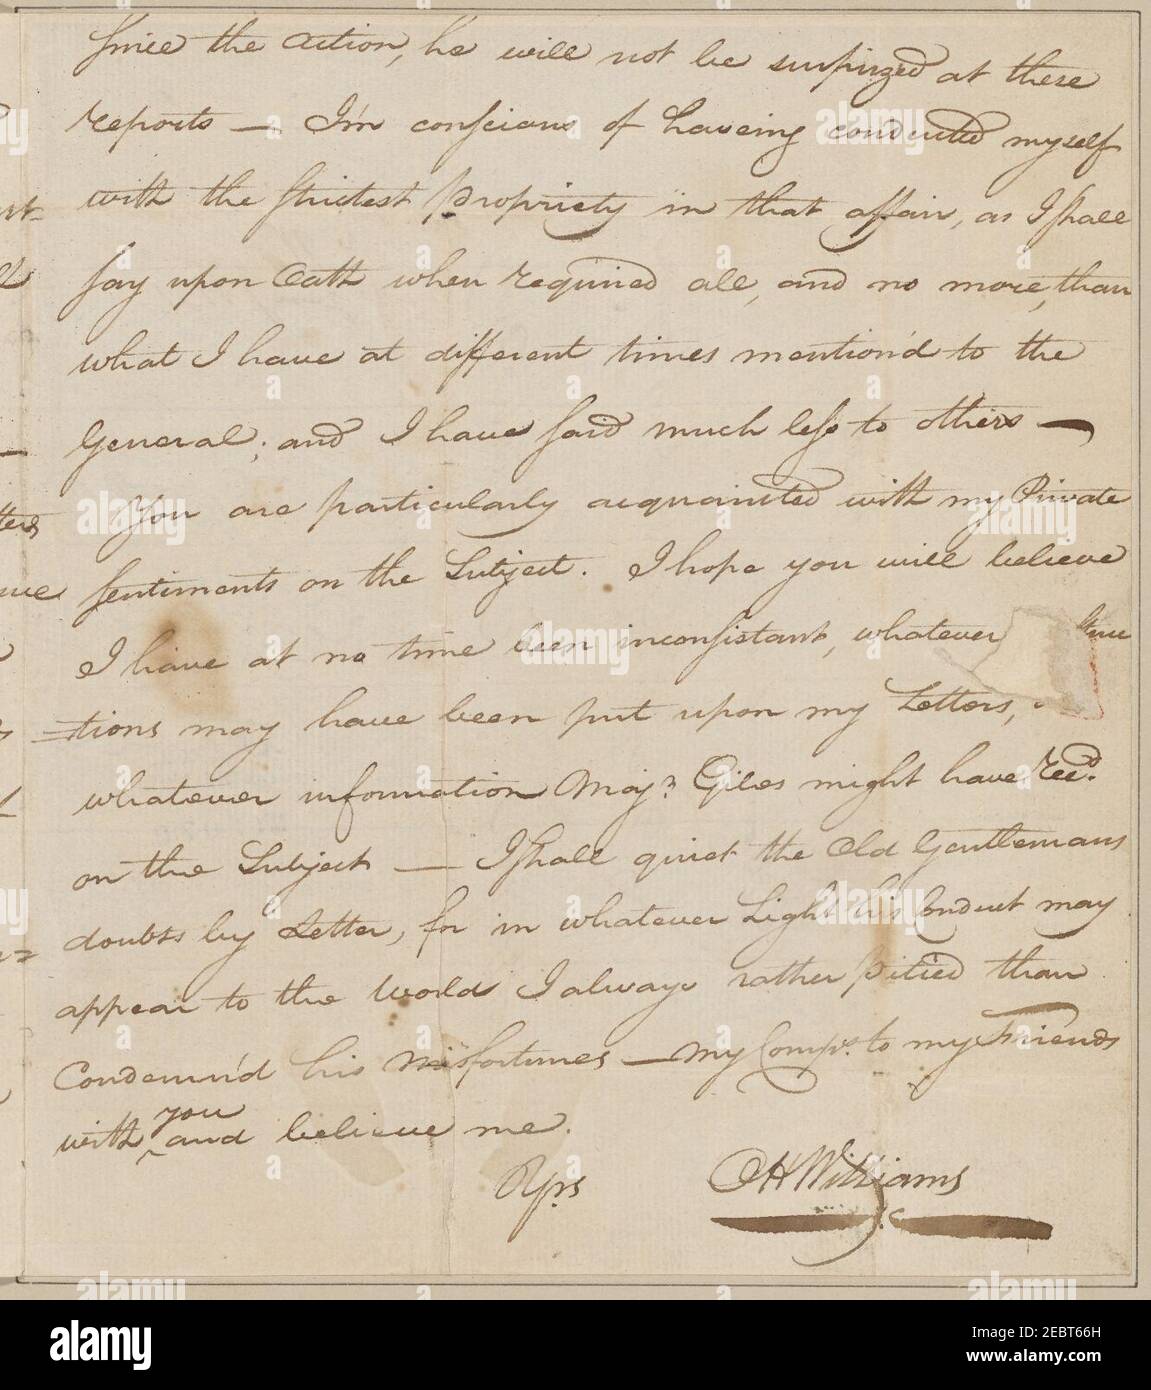 since the Action, he will not be surprized at these
reports — I'm conscious of haveing conducted myself
with the strictest propriety in that affair, as I shall
say upon Oath when required all, and no more, than
what I have at different times mention'd to the
General; and I have said much less to others —
You are particularly acquainted with my Private
sentiments on the Subject. I hope you will believe
I have at no time been inconsistant, whatever
=tions may have been put upon my Letters,
whatever information Majr. Giles might have recd.
on the Subject — I shall quiet the Old Gentlemans
doubts by Letter, for in whatever Light his Conduct may
appear to the World I always rather pitied than
Condemn'd his Misfortunes — my Compts. to my Friends
with you and believe me.
Yrs
OH Williams
alamy
Image ID: 2EBT66H
www.alamy.com